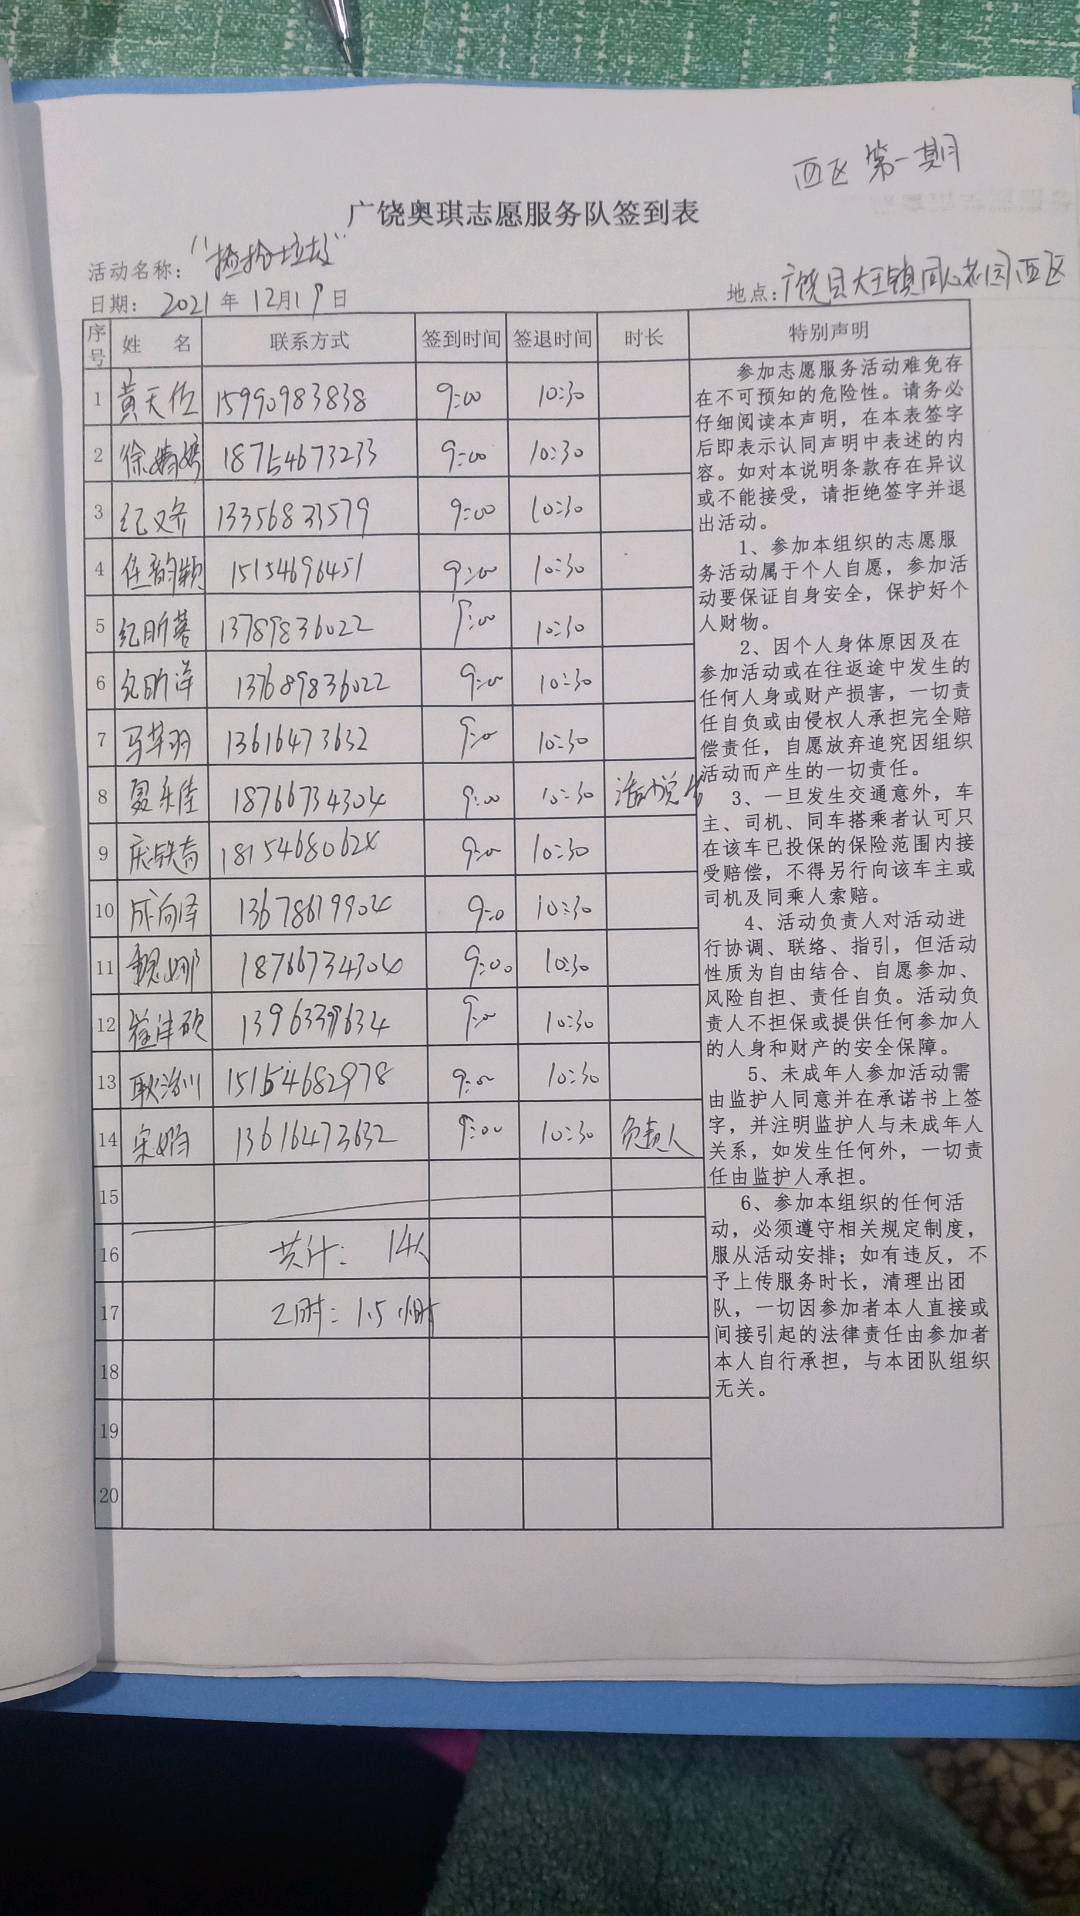 西区 第一期
广饶奥琪志愿服务队签到表
活动名称："捡拾垃圾"
日期：2021年12月19日
地点：广饶县大王镇同心花园西区
序号 姓 名 联系方式 签到时间 签退时间 时长 特别声明
1 黄天佐 15990983838 9:00 10:30
2 徐嫣嫣 18754673233 9:00 10:30
3 纪文齐 13356833579 9:00 10:30
4 任韵颖 15154696451 9:00 10:30
5 纪昕蓉 13789836022 9:00 10:30
6 纪昕洋 137689836022 9:00 10:30
7 马苹羽 13616473632 9:00 10:30
8 夏乐佳 18766734304 9:00 10:30
9 18154680628 9:00 10:30
10 成向泽 13678619904 9:0 10:30
11 魏娜 18766734304 9:00 10:30
12 13963398634 9:00 10:30
13 耿 15154682978 9:00 10:30
14 宋娟 13616473632 9:00 10:30 负责人
15
16 共计： 14人
17 工时：1.5小时
18
19
20
参加志愿服务活动难免存
在不可预知的危险性。请务必
仔细阅读本声明，在本表签字
后即表示认同声明中表述的内
容。如对本说明条款存在异议
或不能接受，请拒绝签字并退
出活动。
1、参加本组织的志愿服
务活动属于个人自愿，参加活
动要保证自身安全，保护好个
人财物。
2、因个人身体原因及在
参加活动或在往返途中发生的
任何人身或财产损害，一切责
任自负或由侵权人承担完全赔
偿责任，自愿放弃追究因组织
活动而产生的一切责任。
3、一旦发生交通意外，车
主、司机、同车搭乘者认可只
在该车已投保的保险范围内接
受赔偿，不得另行向该车主或
司机及同乘人索赔。
4、活动负责人对活动进
行协调、联络、指引，但活动
性质为自由结合、自愿参加、
风险自担、责任自负。活动负
责人不担保或提供任何参加人
的人身和财产的安全保障。
5、未成年人参加活动需
由监护人同意并在承诺书上签
字，并注明监护人与未成年人
关系，如发生任何外，一切责
任由监护人承担。
6、参加本组织的任何活
动，必须遵守相关规定制度，
服从活动安排；如有违反，不
予上传服务时长，清理出团
队，一切因参加者本人直接或
间接引起的法律责任由参加者
本人自行承担，与本团队组织
无关。